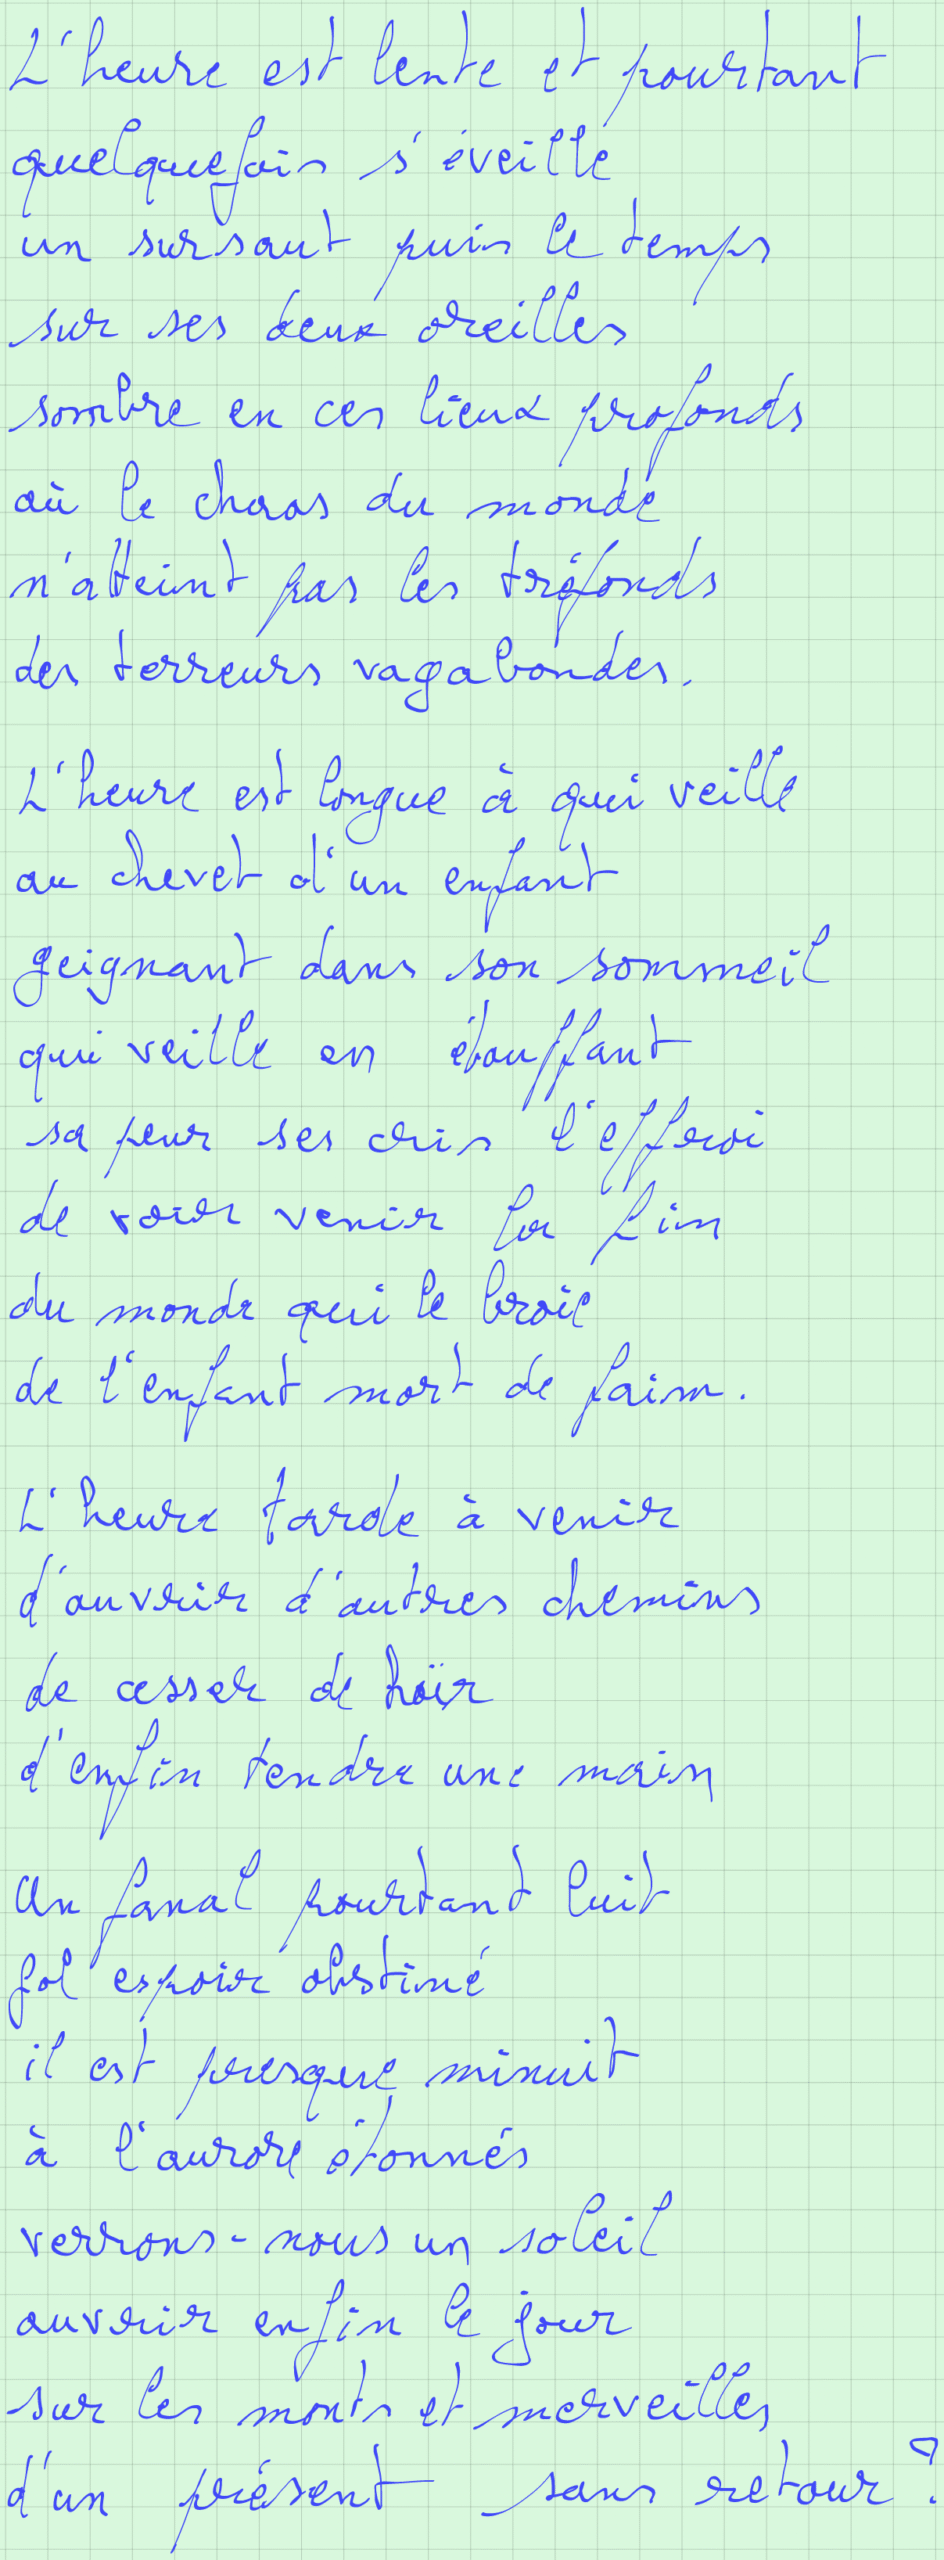 L'heure est lente et pourtant
quelquefois s'éveille
un sursaut puis le temps
sur ses deux oreilles
sombre en ces lieux profonds
où le chaos du monde
n'atteint pas les tréfonds
des terreurs vagabondes.
L'heure est longue à qui veille
au chevet d'un enfant
geignant dans son sommeil
qui veille en étouffant
sa peur ses cris l'effroi
de voir venir la fin
du monde qui le broie
de l'enfant mort de faim.
L'heure tarde à venir
d'ouvrir d'autres chemins
de cesser de haïr
d'enfin tendre une main
Un fanal pourtant luit
fol espoir obstiné
il est presque minuit
à l'aurore étonnés
verrons-nous un soleil
ouvrir enfin le jour
sur les monts et merveilles
d'un présent sans retour ?